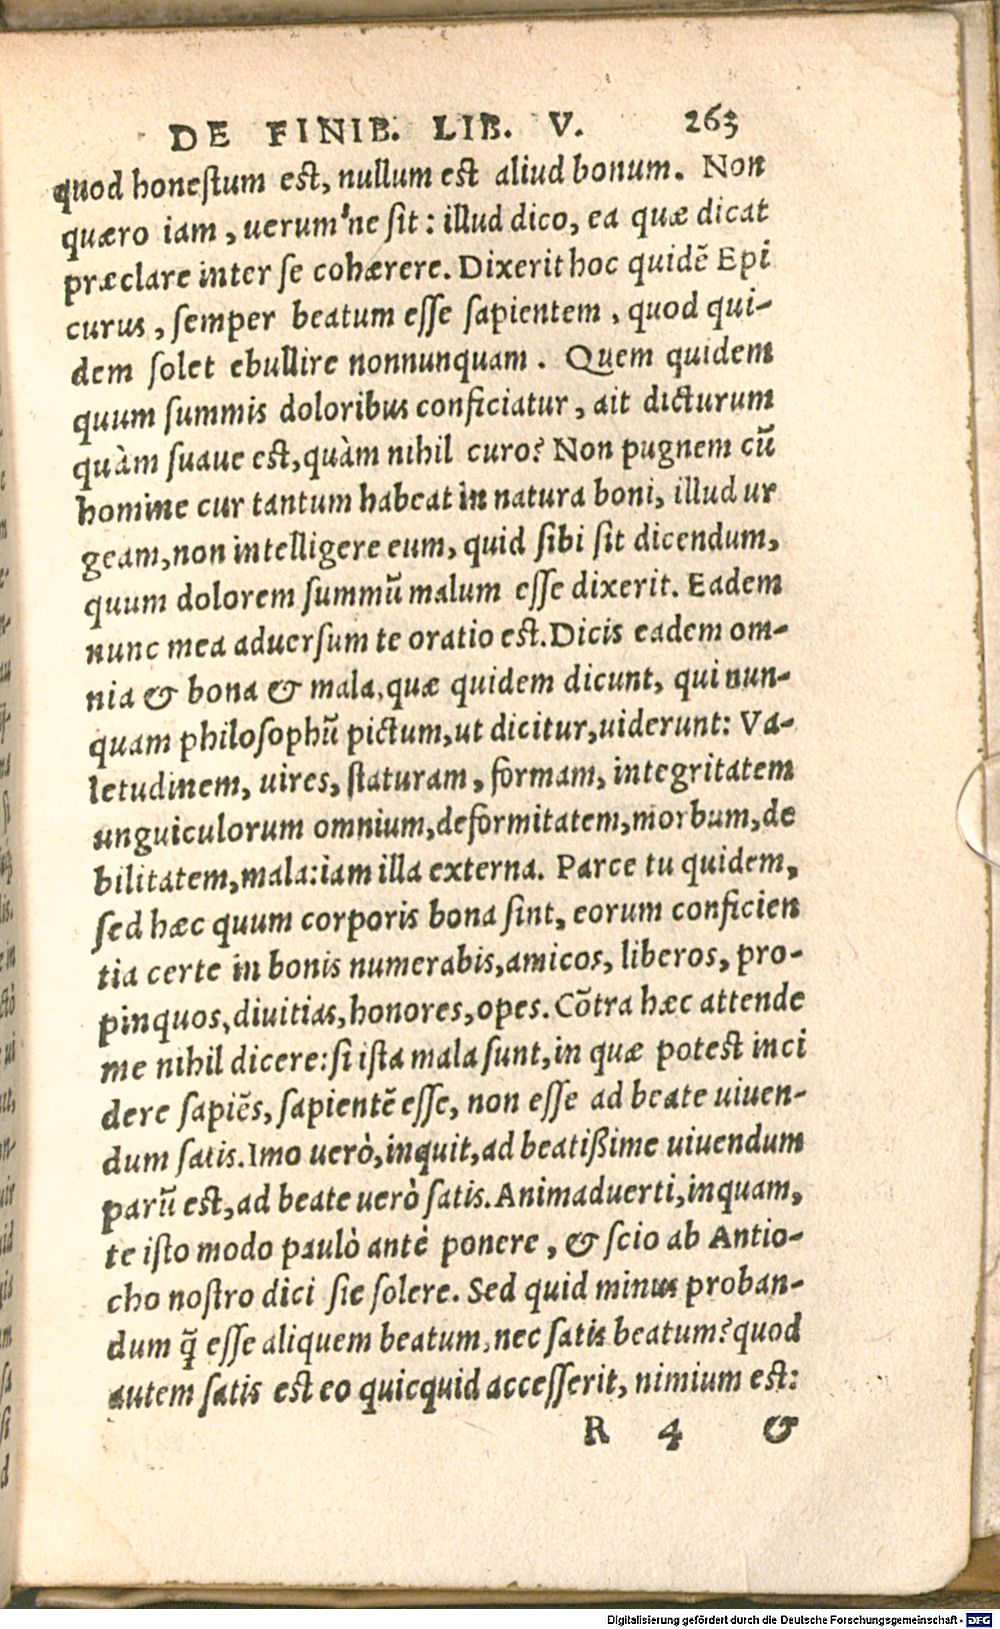 DE FINIB. LIB. V. 263
quod honeſtum eſt, nullum eſt aliud bonum. Non
quæro iam, uerum'ne ſit: illud dico, ea quæ dicat
præclare inter ſe cohærere. Dixerit hoc quidẽ Epi
curus, ſemper beatum eſſe ſapientem, quod qui-
dem ſolet ebullire nonnunquam. Quem quidem
quum ſummis doloribus conficiatur, ait dicturum
quàm ſuaue eſt, quàm nihil curo? Non pugnem cũ
homine cur tantum habeat in natura boni, illud ur
geam, non intelligere eum, quid ſibi ſit dicendum,
quum dolorem ſummũ malum eſſe dixerit. Eadem
nunc mea aduerſum te oratio eſt. Dicis eadem om-
nia & bona & mala, quæ quidem dicunt, qui nun-
quam philoſophũ pictum, ut dicitur, uiderunt: Va-
letudinem, uires, ſtaturam, formam, integritatem
unguiculorum omnium, deformitatem, morbum, de
bilitatem, mala: iam illa externa. Parce tu quidem,
ſed hæc quum corporis bona ſint, eorum conficien
tia certe in bonis numerabis, amicos, liberos, pro-
pinquos, diuitias, honores, opes. Cõtra hæc attende
me nihil dicere: ſi iſta mala ſunt, in quæ poteſt inci
dere ſapiẽs, ſapientẽ eſſe, non eſſe ad beate uiuen-
dum ſatis. Imo uerò, inquit, ad beatißime uiuendum
parũ eſt, ad beate uerò ſatis. Animaduerti, inquam,
te iſto modo paulò antè ponere, & ſcio ab Antio-
cho noſtro dici ſic ſolere. Sed quid minus proban-
dum q̃ eſſe aliquem beatum, nec ſatis beatum? quod
autem ſatis eſt eo quicquid acceſſerit, nimium eſt:
R 4 &
Digitalisierung gefördert durch die Deutsche Forschungsgemeinschaft - DFG